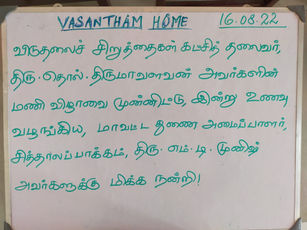 VASANTHAM HOME 16.08.22
விடுதலைச் சிறுத்தைகள் கட்சித் தலைவர்,
திரு. தொல். திருமாவளவன் அவர்களின்
மணி விழாவை முன்னிட்டு, இன்று உணவு
வழங்கிய, மாவட்ட துணை அமைப்பாளர்,
சித்தாலப்பாக்கம், திரு. எம். டி. முனிஷ்
அவர்களுக்கு மிக்க நன்றி!